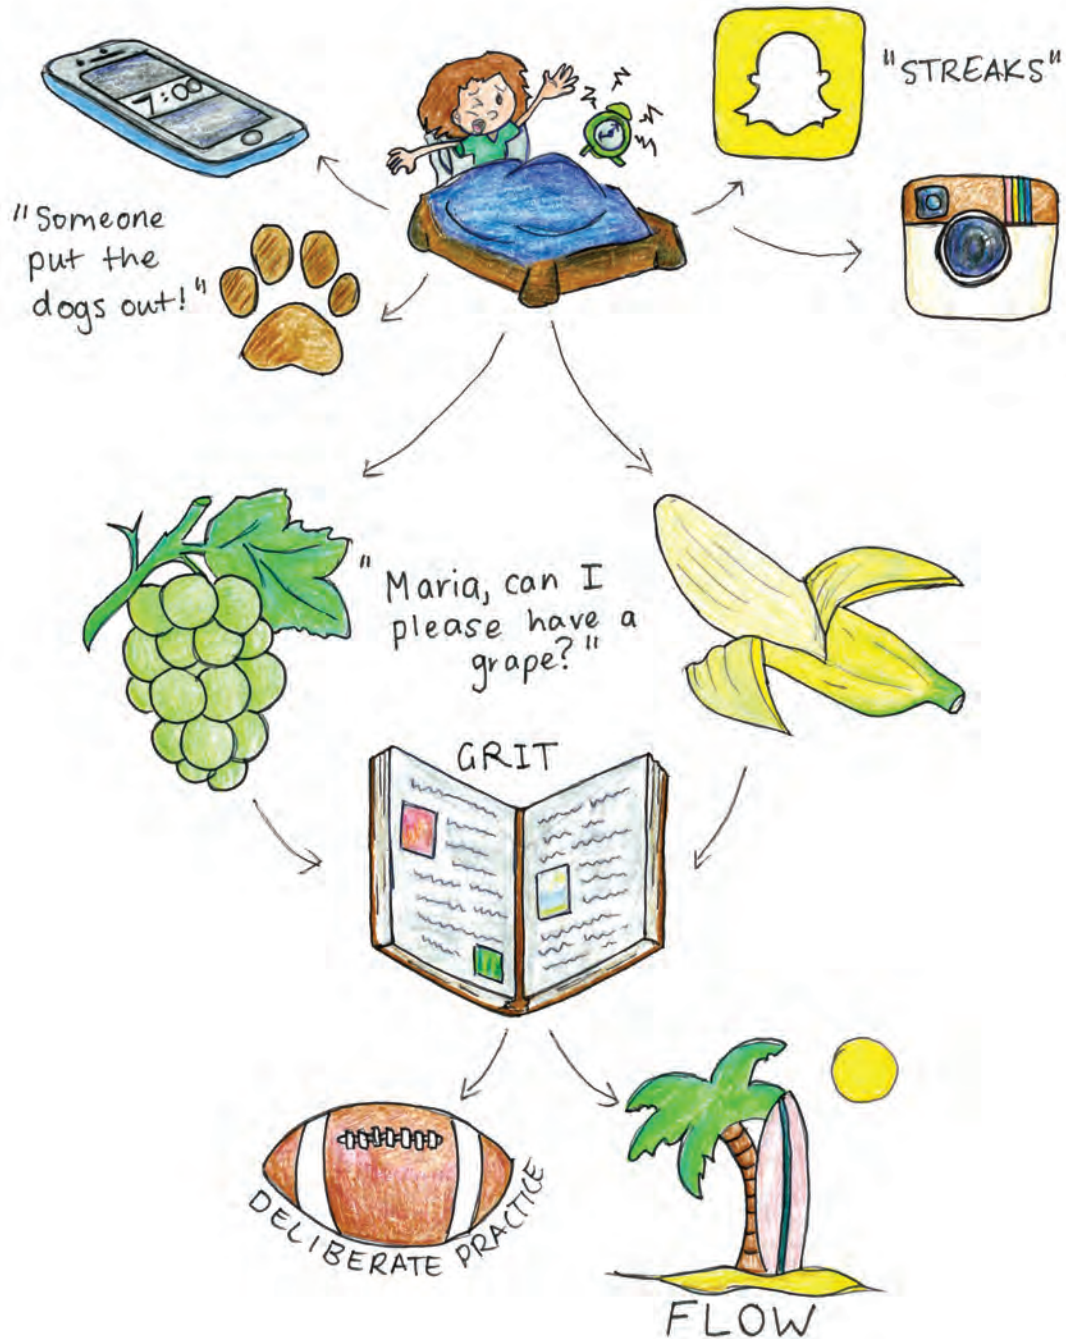 7:00
"STREAKS"
"Someone
put the
dogs out!"
"Maria, can I
please have a
grape?"
GRIT
DELIBERATE PRACTICE
FLOW